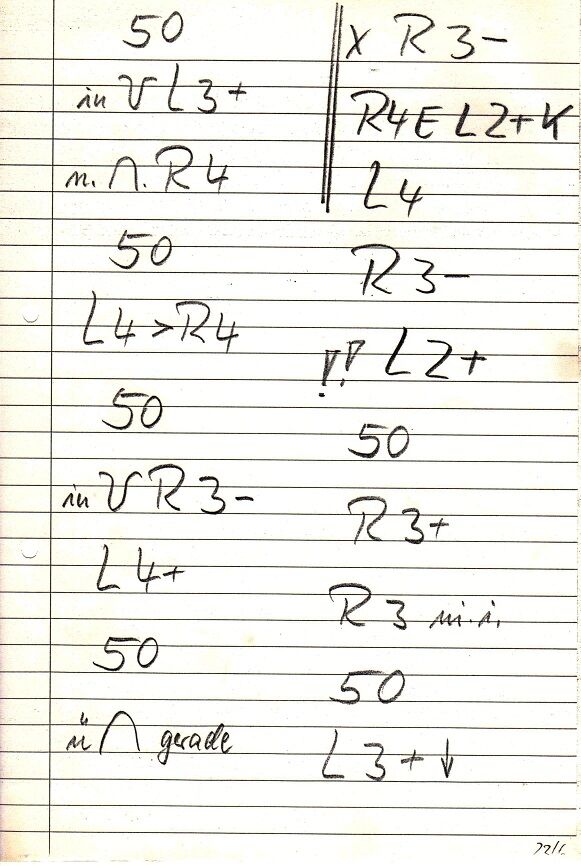 50
in V L3+
n. ∩. R4
50
L4 > R4
50
in V R3-
L4+
50
ü ∩ gerade
X R3-
R4 E L2+ K
L4
R3-
!! L2+
50
R3+
R3 m.i.
50
L3+ ↓